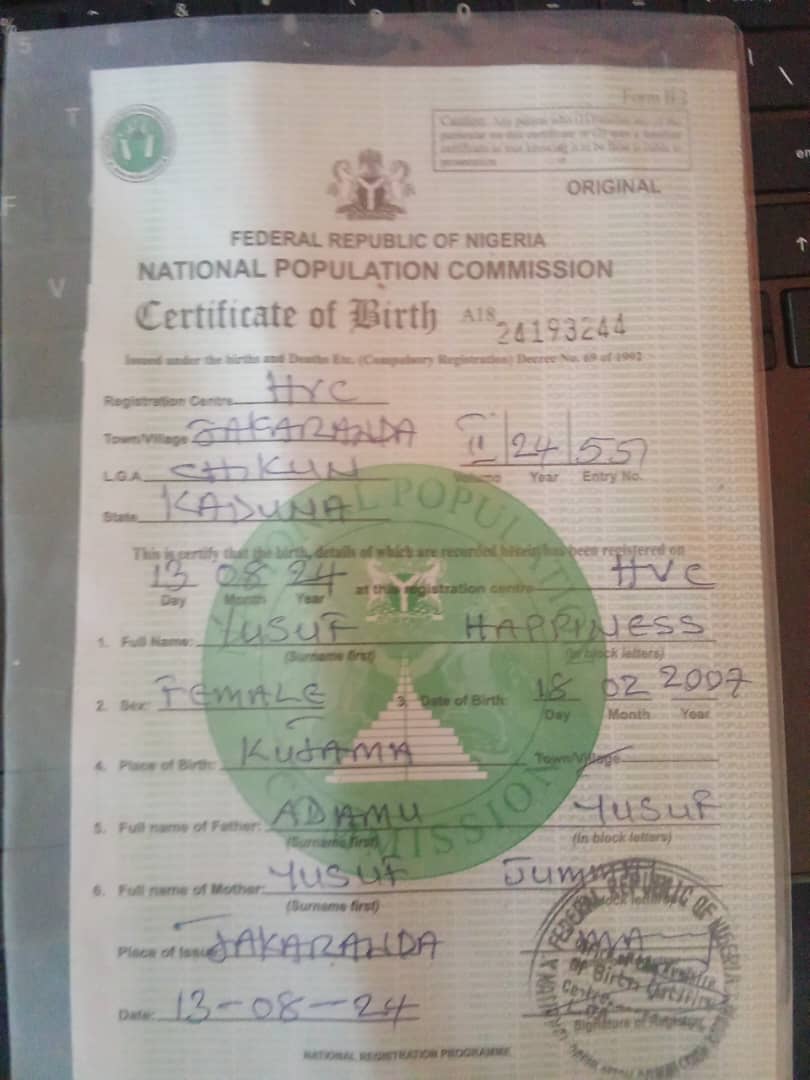 Form B 1
Caution: Any person who (1) falsifies any of the
particular on this certificate or (2) uses a falsified
certificate as true knowing it to be false is liable to
prosecution
ORIGINAL
FEDERAL REPUBLIC OF NIGERIA
NATIONAL POPULATION COMMISSION
Certificate of Birth A18 24193244
Issued under the births and Deaths Etc. (Compulsory Registration) Decree No. 69 of 1992
Registration Centre HVC
Town/Village JAKARANDA II 24 557
L.G.A. CHIKUN Volume Year Entry No.
State KADUNA
This is certify that the birth, details of which are recorded herein has been registered on
13 08 24 at this registration centre HVC
Day Month Year
1. Full Name: YUSUF HAPPINESS
(Surname first) (in block letters)
2. Sex: FEMALE 3. Date of Birth: 18 02 2007
Day Month Year
4. Place of Birth: KUJAMA Town/Village
5. Full name of Father: ADAMU YUSUF
(Surname first) (in block letters)
6. Full name of Mother: YUSUF JUMMAI
(Surname first) block letters)
Place of Issue JAKARANDA
Date: 13-08-24
Signature of Registrar
FEDERAL REPUBLIC OF NIGERIA
NATIONAL REGISTRATION PROGRAMME
NATIONAL POPULATION COMMISSION